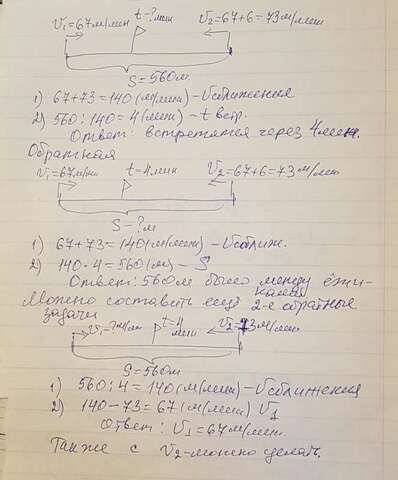 V₁=67м/мин t-?мин V₂=67+6=73м/мин
S=560м
1) 67+73=140(м/мин)-Vсближения
2) 560:140=4(мин)-t встр.
Ответ: встретятся через 4мин.
Обратная
V₁=67м/мин t=4мин V₂=67+6=73м/мин
S-?м
1) 67+73=140(м/мин)-Vсближ.
2) 140·4=560(м)- S
Ответ: 560м было между ёжи-
ками
Можно составить ещё 2-е обратные
задачи
V₁-?м/м t=4 мин V₂=73м/мин
S=560м
1) 560:4=140(м/мин)-Vсближения
2) 140-73=67(м/мин) V₁
Ответ: V₁=67м/мин.
Также с V₂-можно сделать.